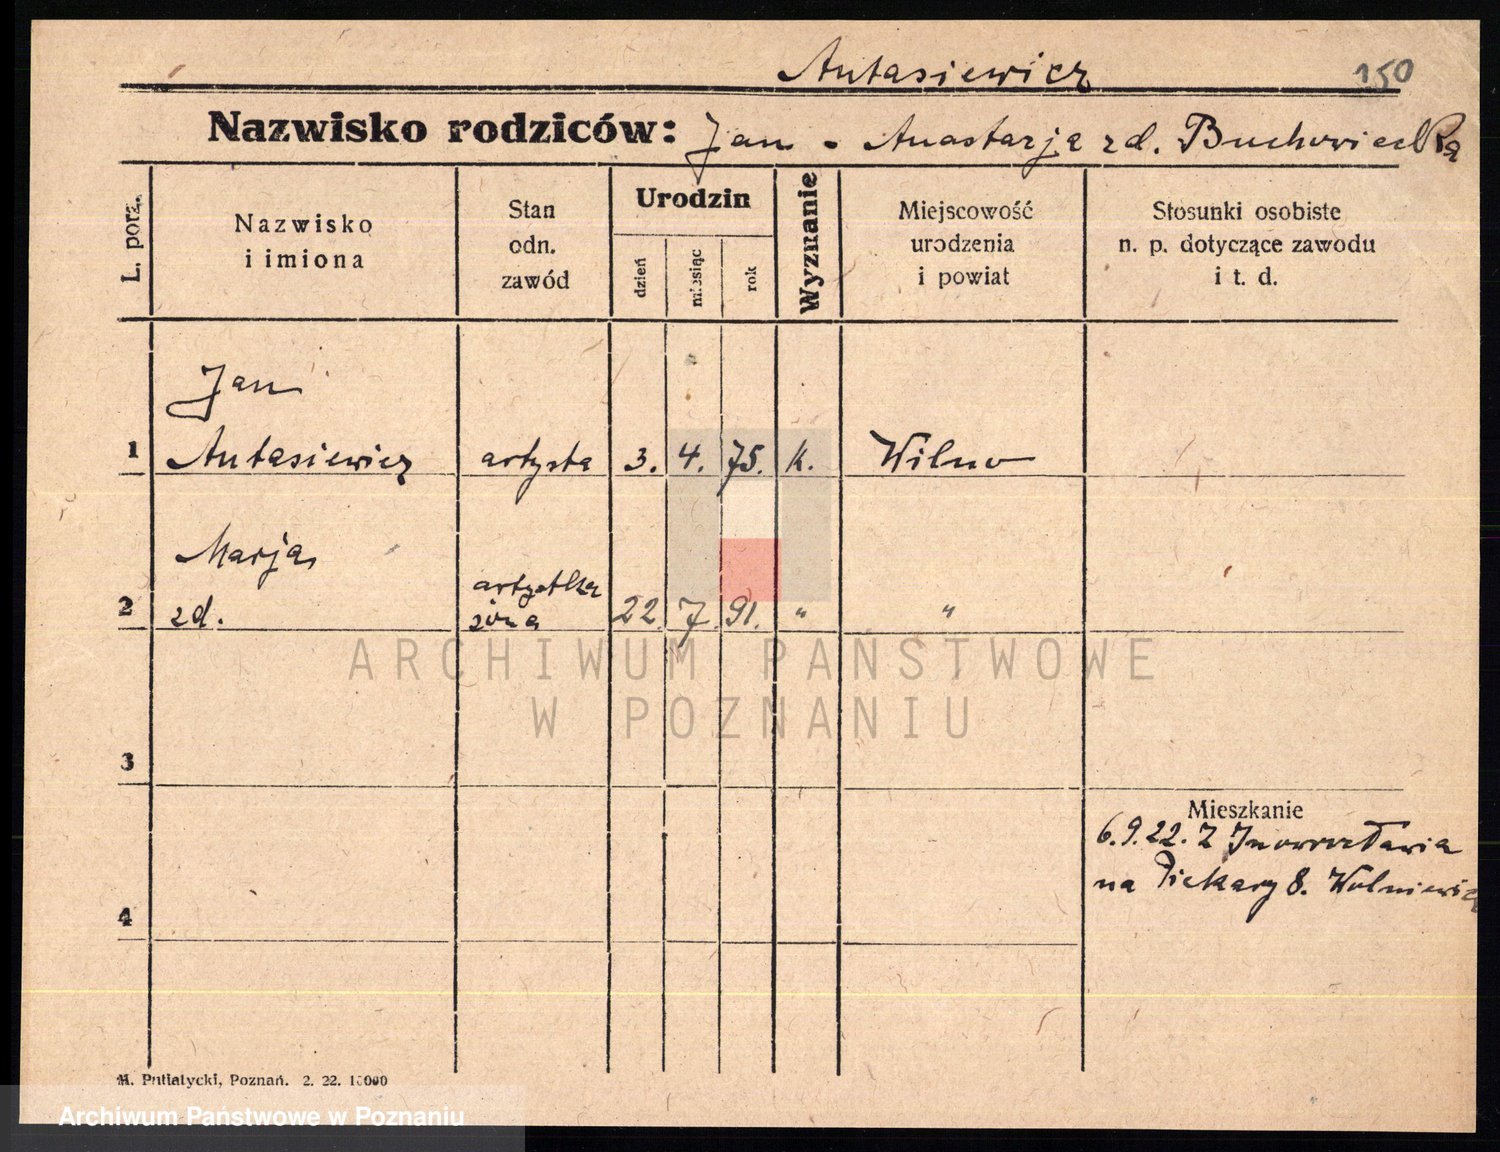 Antasiewicz 150
Nazwisko rodziców: Jan - Anastazja zd. Buchowiecka
L. porz.
Nazwisko
i imiona
Stan
odn.
zawód
Urodzin
dzień
miesiąc
rok
Wyznanie
Miejscowość
urodzenia
i powiat
Stosunki osobiste
n. p. dotyczące zawodu
i t. d.
Jan
1 Antasiewicz artysta 3. 4. 75. k. Wilno
Marja
artystka
2 zd. żona 22. 7. 91. " "
ARCHIWUM PAŃSTWOWE
W POZNANIU
3
Mieszkanie
6.9.22. Z Inowrocławia
na Piekary 8. Wolniewicz
4
M. Putiatycki, Poznań. 2. 22. 15000
Archiwum Państwowe w Poznaniu